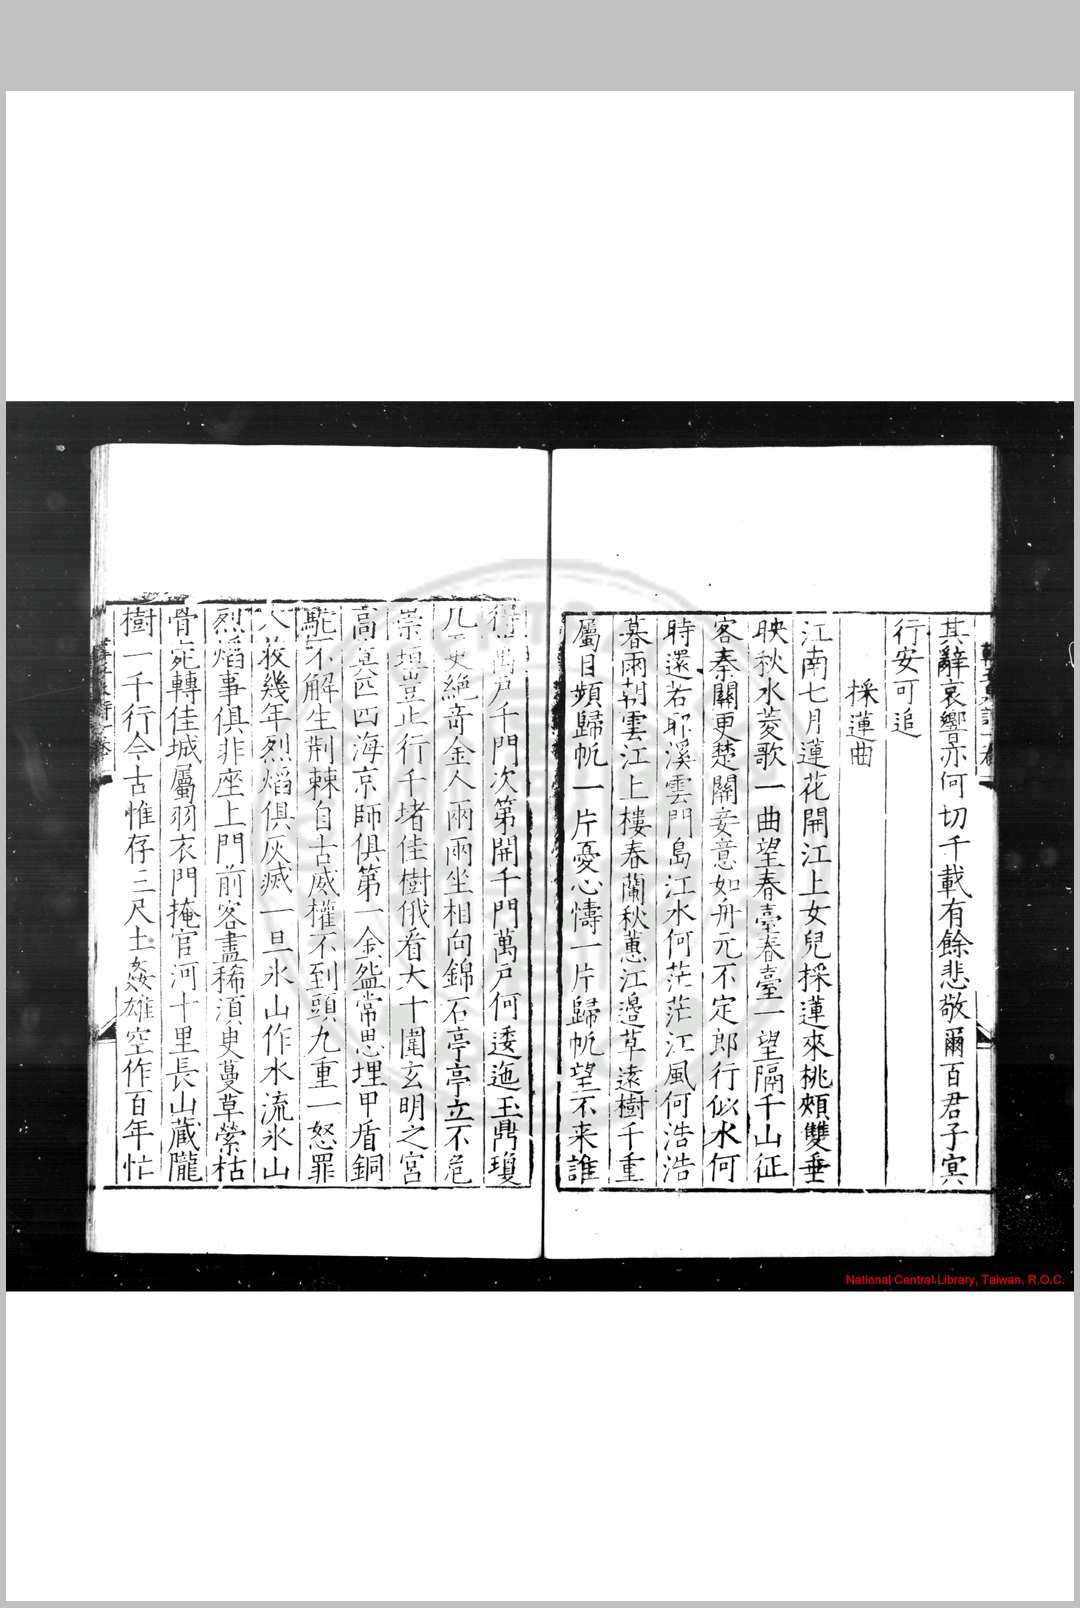 其辭哀響亦何切千載有餘悲敬爾百君子冥
行安可追
採蓮曲
江南七月蓮花開江上女兒採蓮來桃頰雙垂
映秋水菱歌一曲望春臺春臺一望隔千山征
客秦關更楚關妾意如舟元不定郎行似水何
時還若耶溪雲門島江水何茫茫江風何浩浩
暮雨朝雲江上樓春蘭秋蕙江邉草遠樹千重
屬目頻歸帆一片憂心懤一片歸帆望不来誰
得萬戶千門次第開千門萬戶何逶迤玉鼎瓊
几更絶竒金人兩兩坐相向錦石亭亭立不危
崇垣豈止行千堵佳樹俄看大十圍玄明之宮
高莫匹四海京師俱第一金盌常思埋甲盾銅
駝不解生荆棘自古威權不到頭九重一怒罪
人收幾年烈焰俱灰滅一旦氷山作水流氷山
烈焰事俱非座上門前客盡稀湏臾蔓草縈枯
骨宛轉佳城屬羽衣門掩官河十里長山藏隴
樹一千行今古惟存三尺土姦雄空作百年忙
National Central Library, Taiwan, R.O.C.